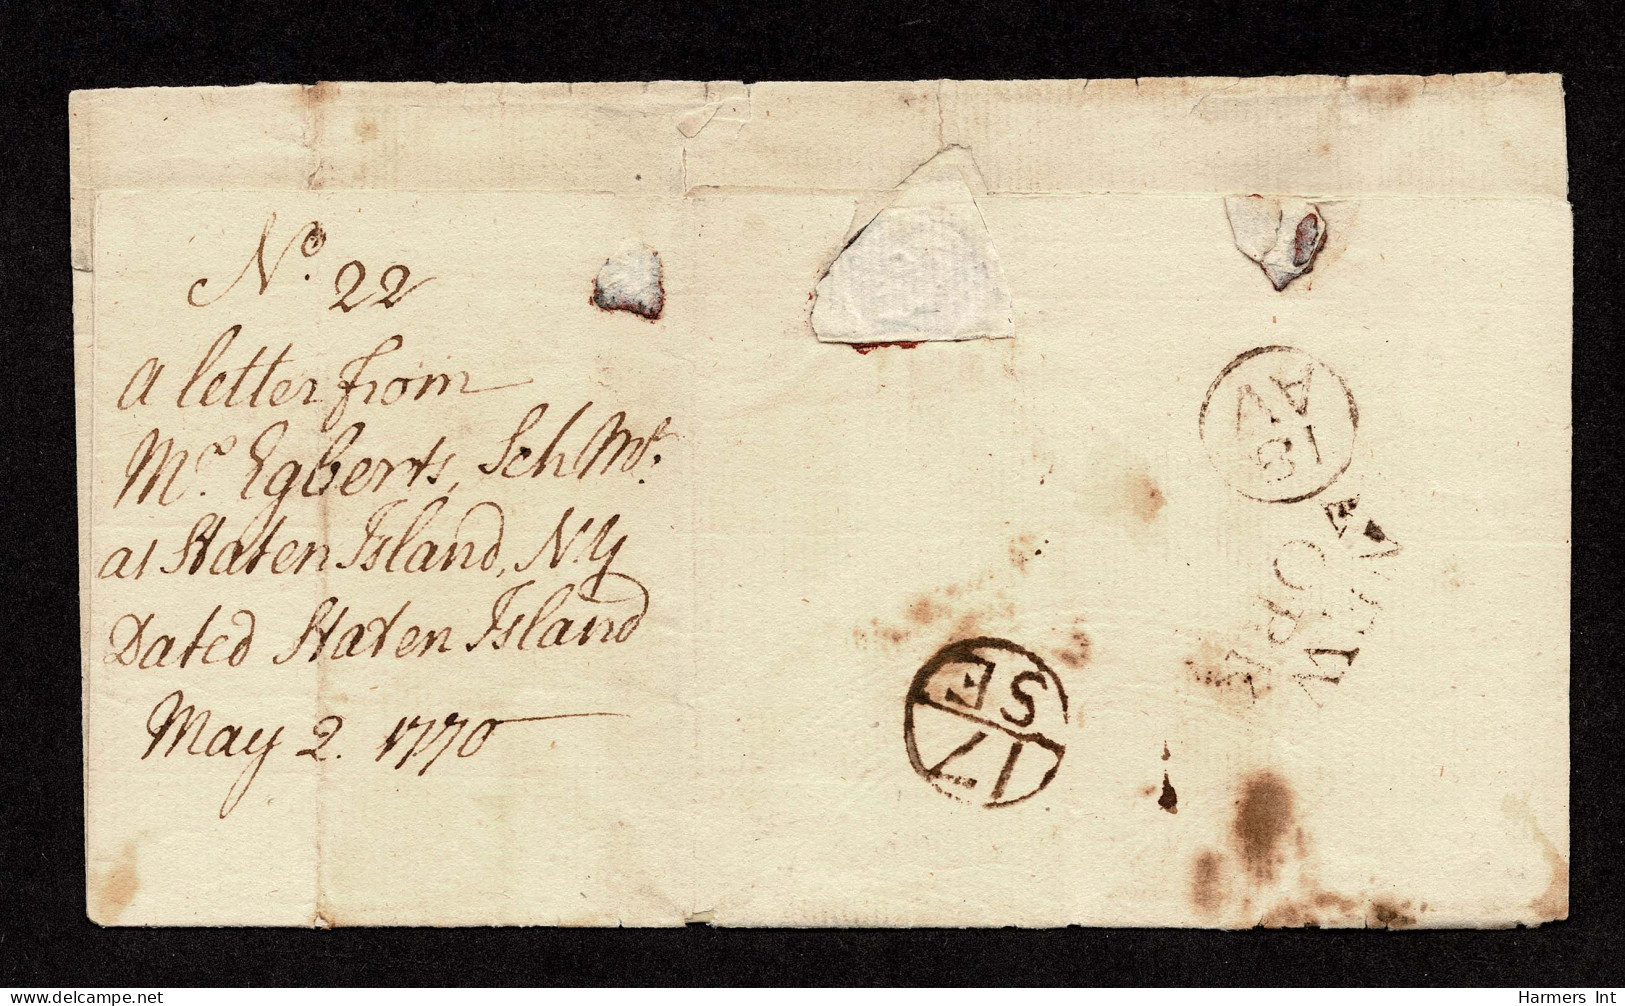 No. 22
A letter from
Mr. Egberts, Sch Mr.
at Staten Island, N.Y
Dated Staten Island
May 2. 1770
AV
18
NEW
YORK
SE
17
delcampe.net
Harmers Int